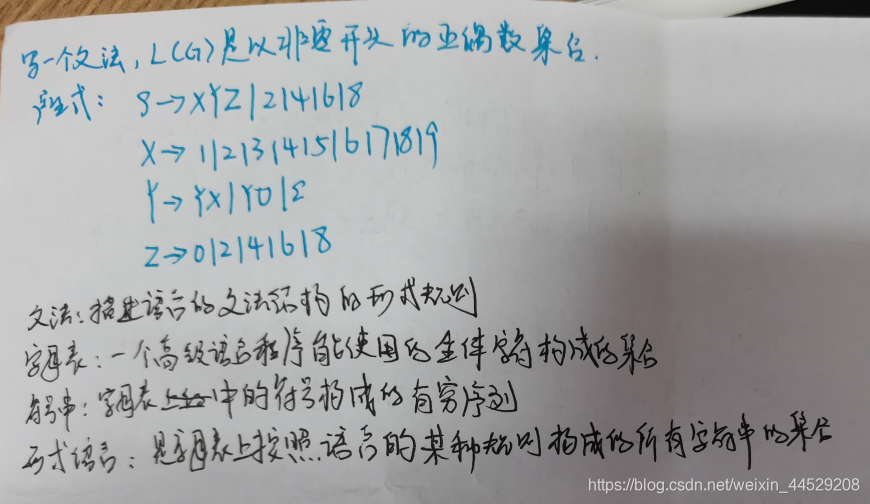 写一个文法,L(G)是以非零开头的正偶数集合.
产生式: S→XYZ|2|4|6|8
X→1|2|3|4|5|6|7|8|9
Y→YX|Y0|ε
Z→0|2|4|6|8
文法:描述语言的文法结构的形式规则
字母表:一个高级语言程序能使用的全体字符构成的集合
符号串:字母表中的符号构成的有穷序列
形式语言:是字母表上按照语言的某种规则构成的所有字符串的集合
https://blog.csdn.net/weixin_44529208